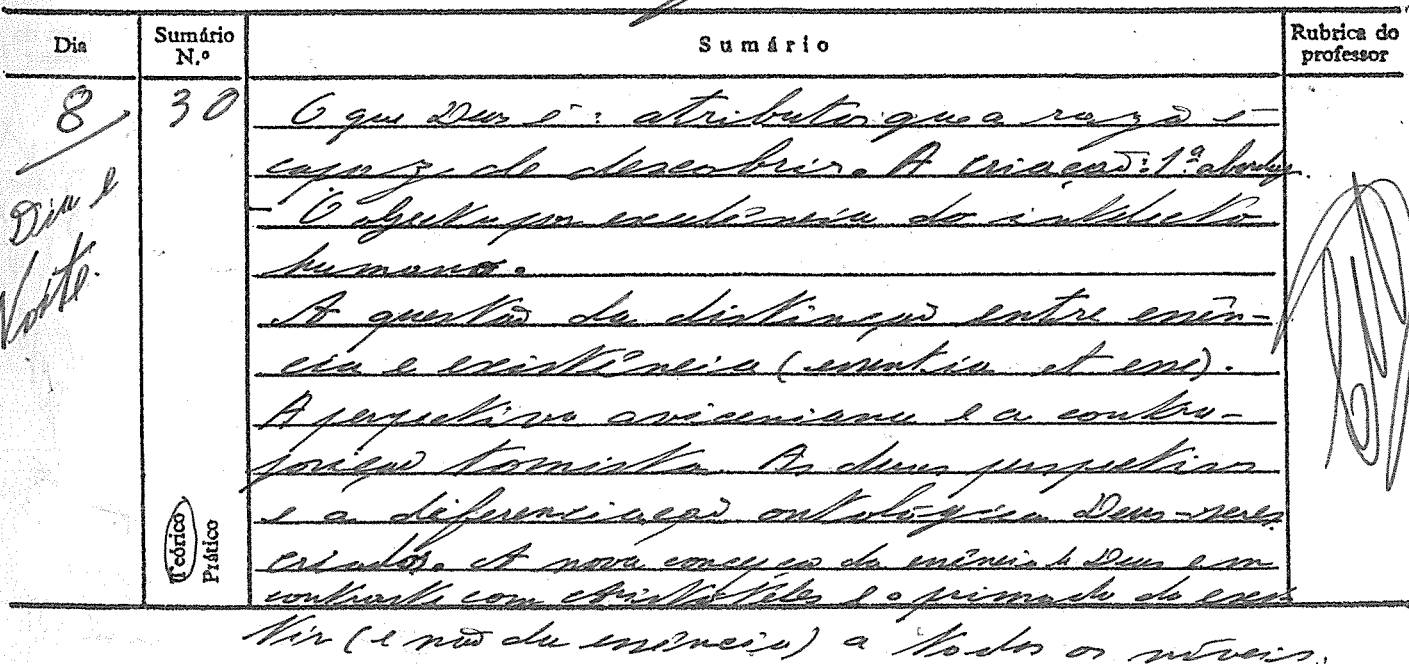 Dia
Sumário N.º
Sumário
Rubrica do professor
8
Dia e Noite.
30
Teórico
Prático
O que Deus é: atributos que a razão é
capaz de descobrir. A criação: 1ª abordg.
- O objecto por excelência do intelecto
humano.
A questão da distinção entre essên-
cia e existência (essentia et esse).
A perspectiva aviceniana e a contra-
posição tomista. As duas perspectivas
e a diferenciação ontológica Deus-seres
criados. A nova concepção da essência de Deus em
contraste com Aristóteles e o primado do exis
tir (e não da essência) a todos os níveis.